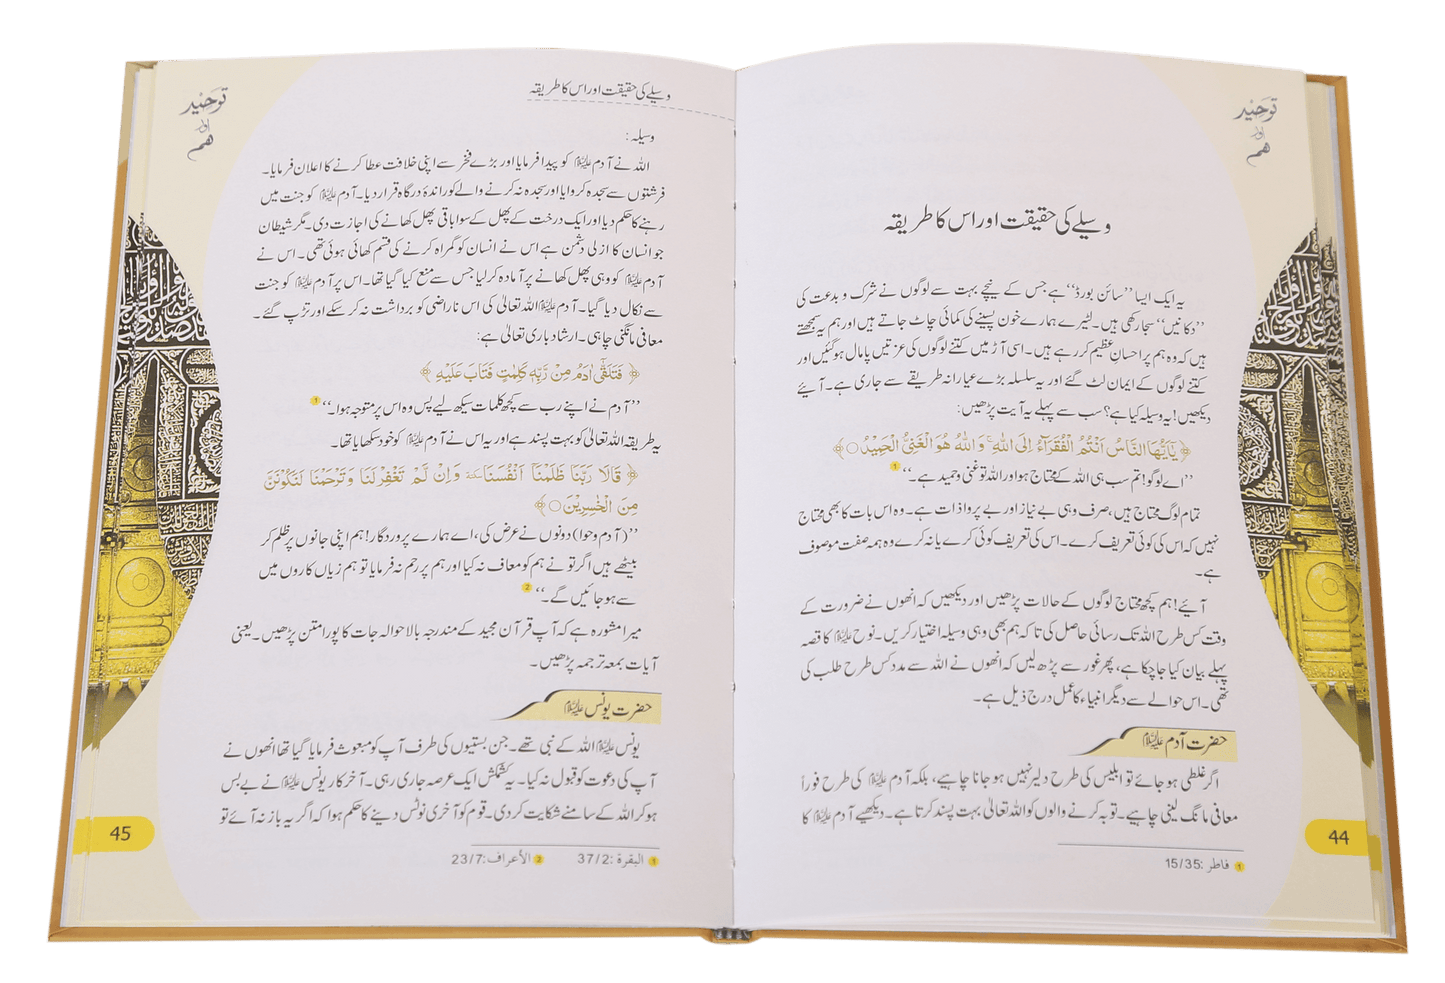 توحید
اور
ہم
وسیلے کی حقیقت اور اس کا طریقہ
یہ ایک ایسا ’’سائن بورڈ‘‘ ہے جس کے نیچے بہت سے لوگوں نے شرک و بدعت کی
’’دکانیں‘‘ سجا رکھی ہیں۔ لٹیرے ہمارے خون پسینے کی کمائی چاٹ جاتے ہیں اور ہم یہ سمجھتے
ہیں کہ وہ ہم پر احسانِ عظیم کر رہے ہیں۔ اسی آڑ میں کتنے لوگوں کی عزتیں پامال ہو گئیں اور
کتنے لوگوں کے ایمان لٹ گئے اور یہ سلسلہ بڑے عیارانہ طریقے سے جاری ہے۔ آیئے
دیکھیں! یہ وسیلہ کیا ہے؟ سب سے پہلے یہ آیت پڑھیں:
﴿يٰۤاَيُّهَا النَّاسُ اَنْتُمُ الْفُقَرَآءُ اِلَى اللّٰهِ ۚ وَ اللّٰهُ هُوَ الْغَنِيُّ الْحَمِيْدُ○﴾
’’اے لوگو! تم سب ہی اللہ کے محتاج ہو اور اللہ تو غنی و حمید ہے۔‘‘ 1
تمام لوگ محتاج ہیں، صرف وہی بے نیاز اور بے پروا ذات ہے۔ وہ اس بات کا بھی محتاج
نہیں کہ اس کی کوئی تعریف کرے۔ اس کی تعریف کوئی کرے یا نہ کرے وہ ہمہ صفت موصوف
ہے۔
آیئے! ہم کچھ محتاج لوگوں کے حالات پڑھیں اور دیکھیں کہ انھوں نے ضرورت کے
وقت کس طرح اللہ تک رسائی حاصل کی تاکہ ہم بھی وہی وسیلہ اختیار کریں۔ نوح علیہ السلام کا قصہ
پہلے بیان کیا جا چکا ہے، پھر غور سے پڑھ لیں کہ انھوں نے اللہ سے مدد کس طرح طلب کی
تھی۔ اس حوالے سے دیگر انبیاء کا عمل درج ذیل ہے۔
حضرت آدم علیہ السلام
اگر غلطی ہو جائے تو ابلیس کی طرح دلیر نہیں ہو جانا چاہیے، بلکہ آدم علیہ السلام کی طرح فوراً
معافی مانگ لینی چاہیے۔ توبہ کرنے والوں کو اللہ تعالیٰ بہت پسند کرتا ہے۔ دیکھیے آدم علیہ السلام کا
1 فاطر :15/35
44
توحید
اور
ہم
وسیلے کی حقیقت اور اس کا طریقہ
وسیلہ:
اللہ نے آدم علیہ السلام کو پیدا فرمایا اور بڑے فخر سے اپنی خلافت عطا کرنے کا اعلان فرمایا۔
فرشتوں سے سجدہ کروایا اور سجدہ نہ کرنے والے کو راندۂ درگاہ قرار دیا۔ آدم علیہ السلام کو جنت میں
رہنے کا حکم دیا اور ایک درخت کے پھل کے سوا باقی پھل کھانے کی اجازت دی۔ مگر شیطان
جو انسان کا ازلی دشمن ہے اس نے انسان کو گمراہ کرنے کی قسم کھائی ہوئی تھی۔ اس نے
آدم علیہ السلام کو وہی پھل کھانے پر آمادہ کر لیا جس سے منع کیا گیا تھا۔ اس پر آدم علیہ السلام کو جنت
سے نکال دیا گیا۔ آدم علیہ السلام اللہ تعالیٰ کی اس ناراضی کو برداشت نہ کر سکے اور تڑپ گئے۔
معافی مانگنی چاہی۔ ارشاد باری تعالیٰ ہے:
﴿ فَتَلَقّٰۤى اٰدَمُ مِنْ رَّبِّهٖ كَلِمٰتٍ فَتَابَ عَلَيْهِ ﴾
’’آدم نے اپنے رب سے کچھ کلمات سیکھ لیے پس وہ اس پر متوجہ ہوا۔‘‘ 1
یہ طریقہ اللہ تعالیٰ کو بہت پسند ہے اور یہ اس نے آدم علیہ السلام کو خود سکھایا تھا۔
﴿ قَالَا رَبَّنَا ظَلَمْنَاۤ اَنْفُسَنَا ٚ وَاِنْ لَّمْ تَغْفِرْلَنَا وَتَرْحَمْنَا لَنَكُوْنَنَّ
مِنَ الْخٰسِرِيْنَ○﴾
’’(آدم و حوا) دونوں نے عرض کی، اے ہمارے پروردگار! ہم اپنی جانوں پر ظلم کر
بیٹھے ہیں اگر تو نے ہم کو معاف نہ کیا اور ہم پر رحم نہ فرمایا تو ہم زیاں کاروں میں
سے ہو جائیں گے۔‘‘ 2
میرا مشورہ ہے کہ آپ قرآن مجید کے مندرجہ بالا حوالہ جات کا پورا متن پڑھیں۔ یعنی
آیات بمعہ ترجمہ پڑھیں۔
حضرت یونس علیہ السلام
یونس علیہ السلام اللہ کے نبی تھے۔ جن بستیوں کی طرف آپ کو مبعوث فرمایا گیا تھا انھوں نے
آپ کی دعوت کو قبول نہ کیا۔ یہ کشمکش ایک عرصہ جاری رہی۔ آخر کار یونس علیہ السلام نے بے بس
ہو کر اللہ کے سامنے شکایت کر دی۔ قوم کو آخری نوٹس دینے کا حکم ہوا کہ اگر یہ باز نہ آئے تو
1 البقرة :37/2 2 الأعراف:23/7
45